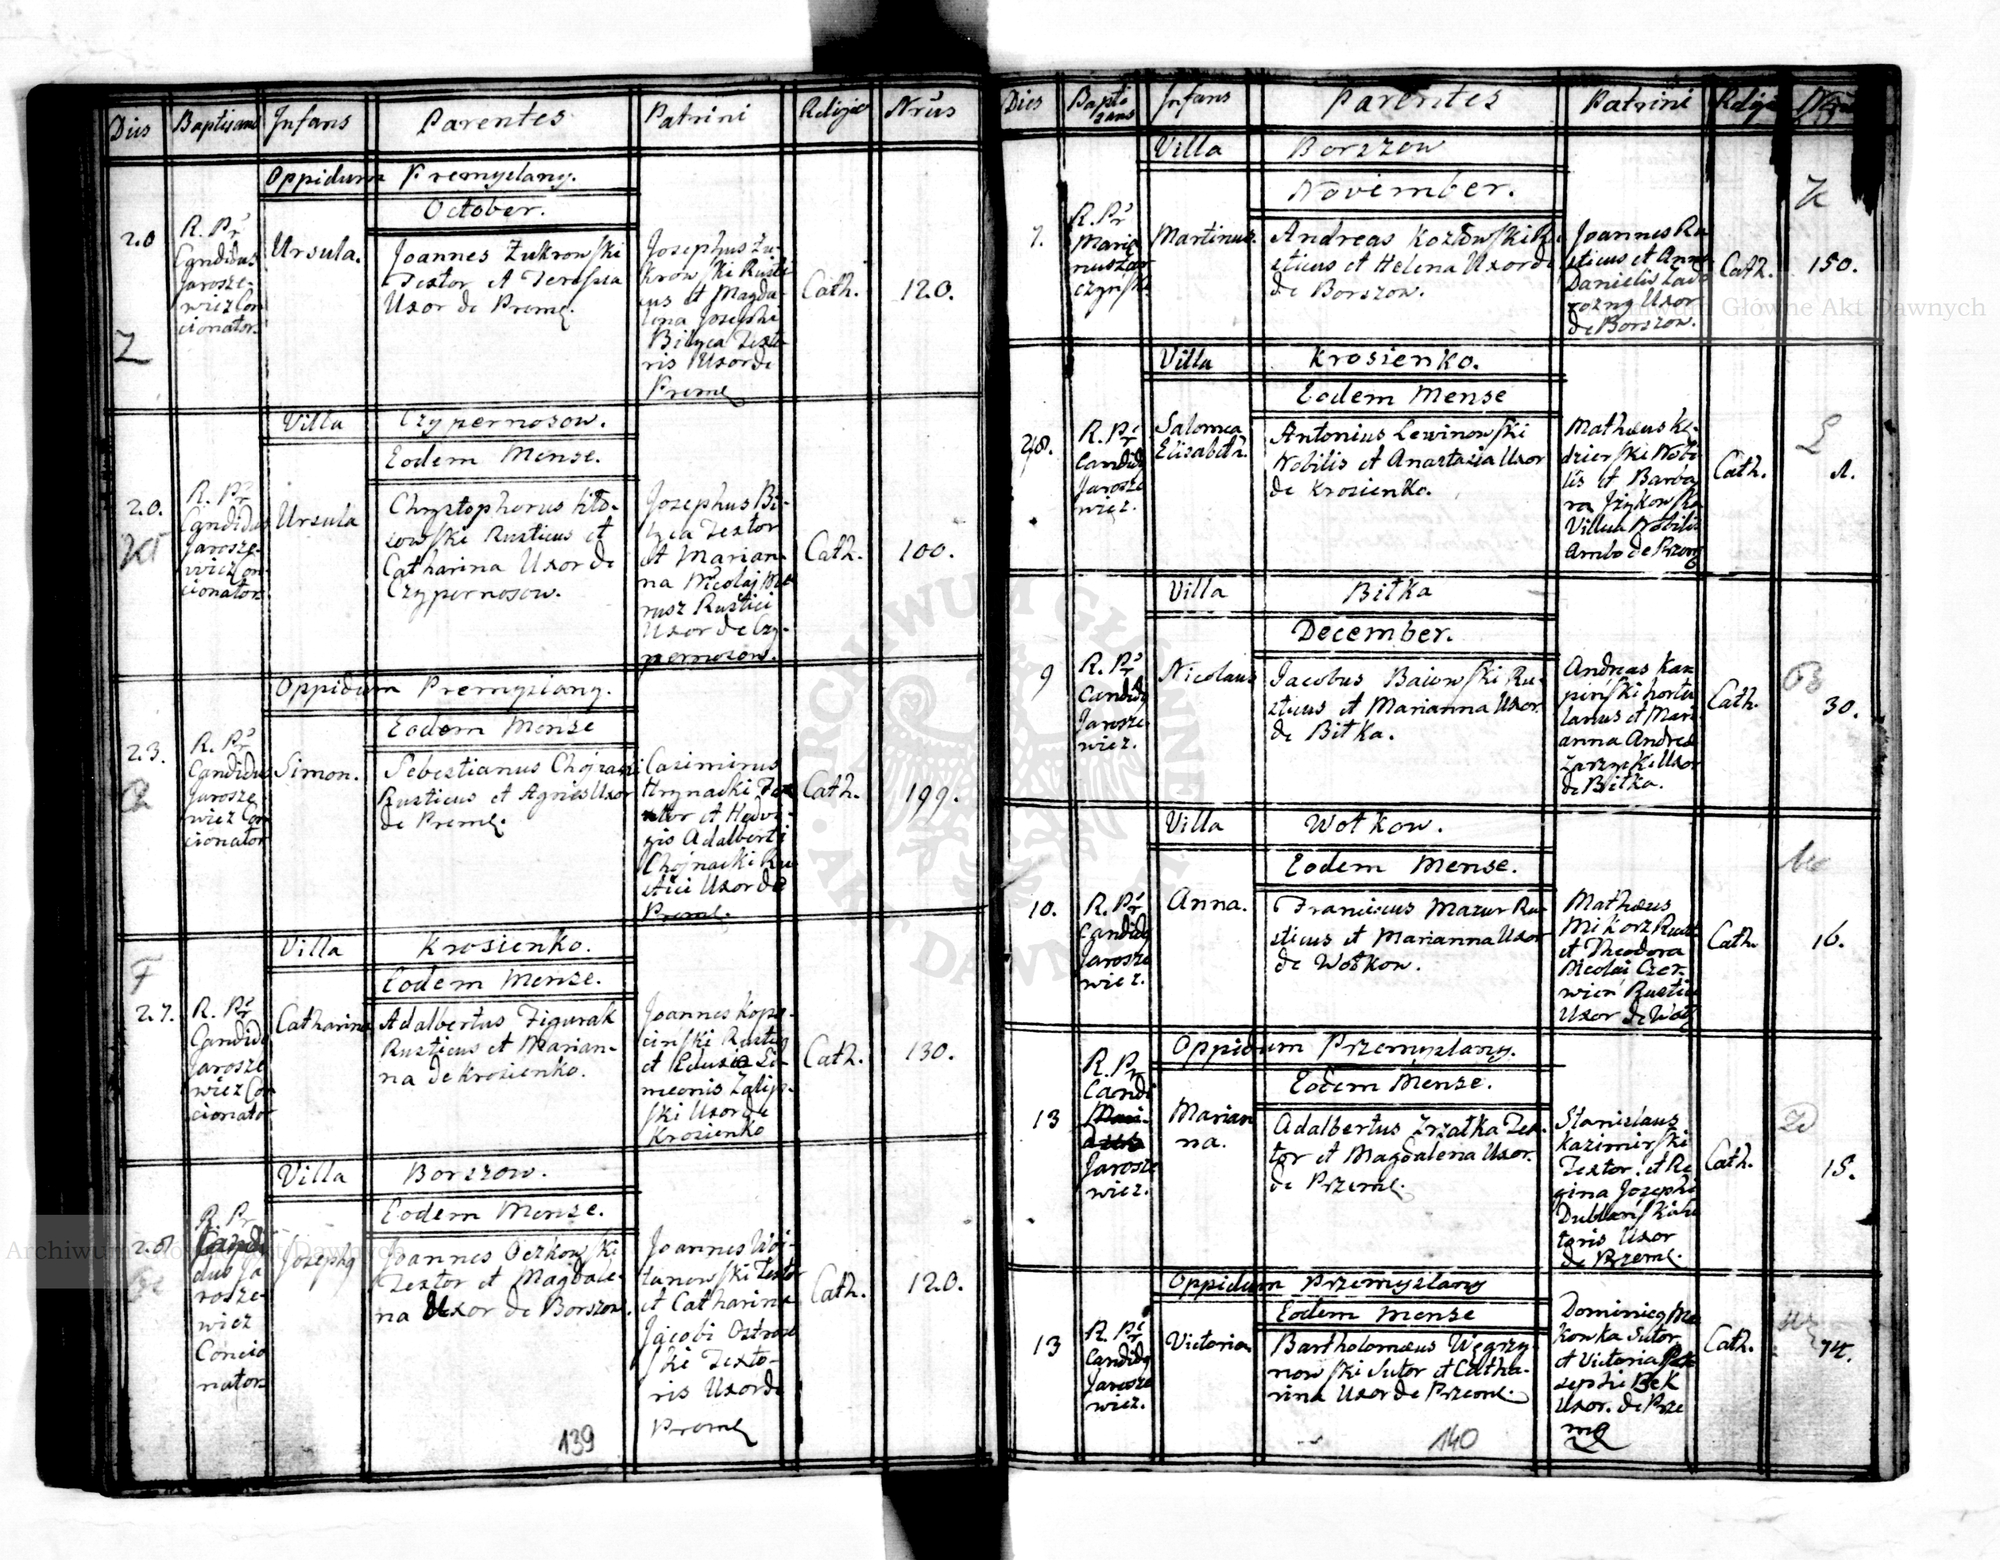 Dies Baptisans Infans Parentes Patrini Religio Nrus
Oppidum Premyslany.
October.
20
R. Pr
Candidus
Jarosze-
wicz Con
cionator.
Z
Ursula.
Joannes Żukrowski
Textor et Teressia
Uxor de Preml.
Josephus Żu-
krowski Rusti
cus et Magda-
lena Josephi
Bilyca Texto
ris Uxor de
Preml
Cath.
120.
Villa Czypernosow.
Eodem Mense.
20.
R. Pr
Candidus
Jarosze-
wicz Con-
cionator
Ursula
Chrystophorus Kło-
sowski Rusticus et
Catharina Uxor de
Czypernosow.
Josephus Bi-
lyca Textor
et Marian-
na Nicolaj
Rustici
Uxor de Czy-
pernosow.
Cath.
100.
Oppidum Premyslany.
Eodem Mense
23.
R. Pr
Candidus
Jarosze-
wicz Con
cionator
Simon.
Sebestianus Chojnacki
Rusticus et Agnes Uxor
de Preml.
Casimirus
Hrynacki Tex
tor et Hedvi-
gis Adalberti
Chojnacki Ru
stici Uxor de
Preml.
Cath.
199.
Villa Krosienko.
Eodem Mense.
F
27.
R. Pr
Candid
Jarosze
wicz Co
cionator
Catharina
Adalbertus Figurak
Rusticus et Marian-
na de Krosienko.
Joannes Kope-
ciński Rustiq
et Si-
meonis Zalip-
ski Uxor de
Krosienko
Cath.
130.
Villa Borszow.
Eodem Mense.
28
R. Pr
Candi
dus Ja
rosze-
wicz
Concio
nator
Josephq
Joannes Oczkowski
Textor et Magdale-
na Uxor de Borszow.
Joannes Woj-
tanowski Textor
et Catharina
Jacobi Ostrow
ski Texto-
ris Uxor de
Preml
Cath.
120.
139
Dies Bapti Infans Parentes Patrini Religio
zans
Villa Borszow
November.
7.
R. Pr
Maria
nus
Martinus.
Andreas Kozłowski Ru
sticus et Helena Uxor
de Borszow.
Joannes Ru
sticus et Anna
Danielis Zad
rozny Uxor
de Borszow.
Cath.
150.
Villa Krosienko.
Eodem Mense
28.
R. Pr
Candidq
Jarosze
wicz.
Salomea
Elisabeth.
Antonius Lewinowski
Nobilis et Anastasia Uxor
de Krosienko.
Mathæus Kę-
dzierski Nobi
lis et Barba
ra Jżykowska
Nobilis
Ambo de Przem
Cath.
1.
Villa Biłka
December.
9
R. Pr
Candidq
Jarosze
wicz.
Nicolaus
Jacobus Baiowski Ru-
sticus et Marianna Uxor.
de Biłka.
Andreas Kar
piński hortu
lanus et Mari
anna Andreæ
Zarzycki Uxor
de Biłka.
Cath.
30.
Villa Wołkow.
Eodem Mense.
10.
R. Pr
Candidq
Jarosze
wicz.
Anna.
Franciscus Mazur Ru-
sticus et Marianna Uxor
de Wołkow.
Mathæus
Mikorz Rusti
et Theodora
Nicolai Czer-
wien Rustici
Uxor de Woł
Cath.
16.
Oppidum Przemyslany.
Eodem Mense.
13
R. Pr
Candi
Jarosze
wicz.
Marian
na.
Adalbertus Zrzałka Tex-
tor et Magdalena Uxor
de Przeml.
Stanislaus
Kazimirski
Textor. et Re
gina Josephi
Uxor
de Przeml.
Cath.
15.
Oppidum Przemyslany
Eodem Mense
13
R. Pr
Candidq
Jarosze
wicz.
Victoria
Bartholomæus Węgrzy-
nowski Sutor et Catha-
rina Uxor de Przeml.
Dominicq Ma
konka Sutor
et Victoria
sephi Bek
Uxor. de Prze
ml
Cath.
74.
140
ARCHIWUM GŁÓWNE AKT DAWNYCH
Archiwum Główne Akt Dawnych
Archiwum Główne Akt Dawnych